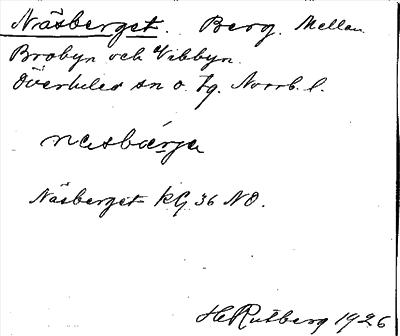 Näsberget. Berg. Mellan
Brobyn och Vibbyn.
Överluleå sn o. tg. Norrb. l.
näsbærje
Näsberget kG 36 NO.
H Rutberg 1926